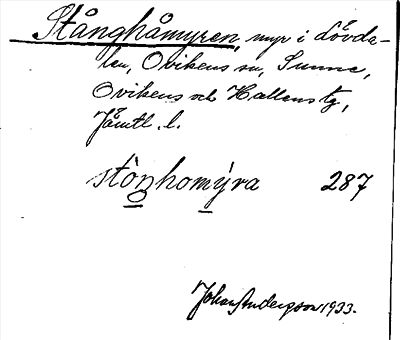 Stånghåmyren, myr i Lövda-
len, Ovikens sn, Sunne,
Ovikens och Hallens tg,
Jämtl. l.
stòŋhomýra 287
Johan Andersson 1933.